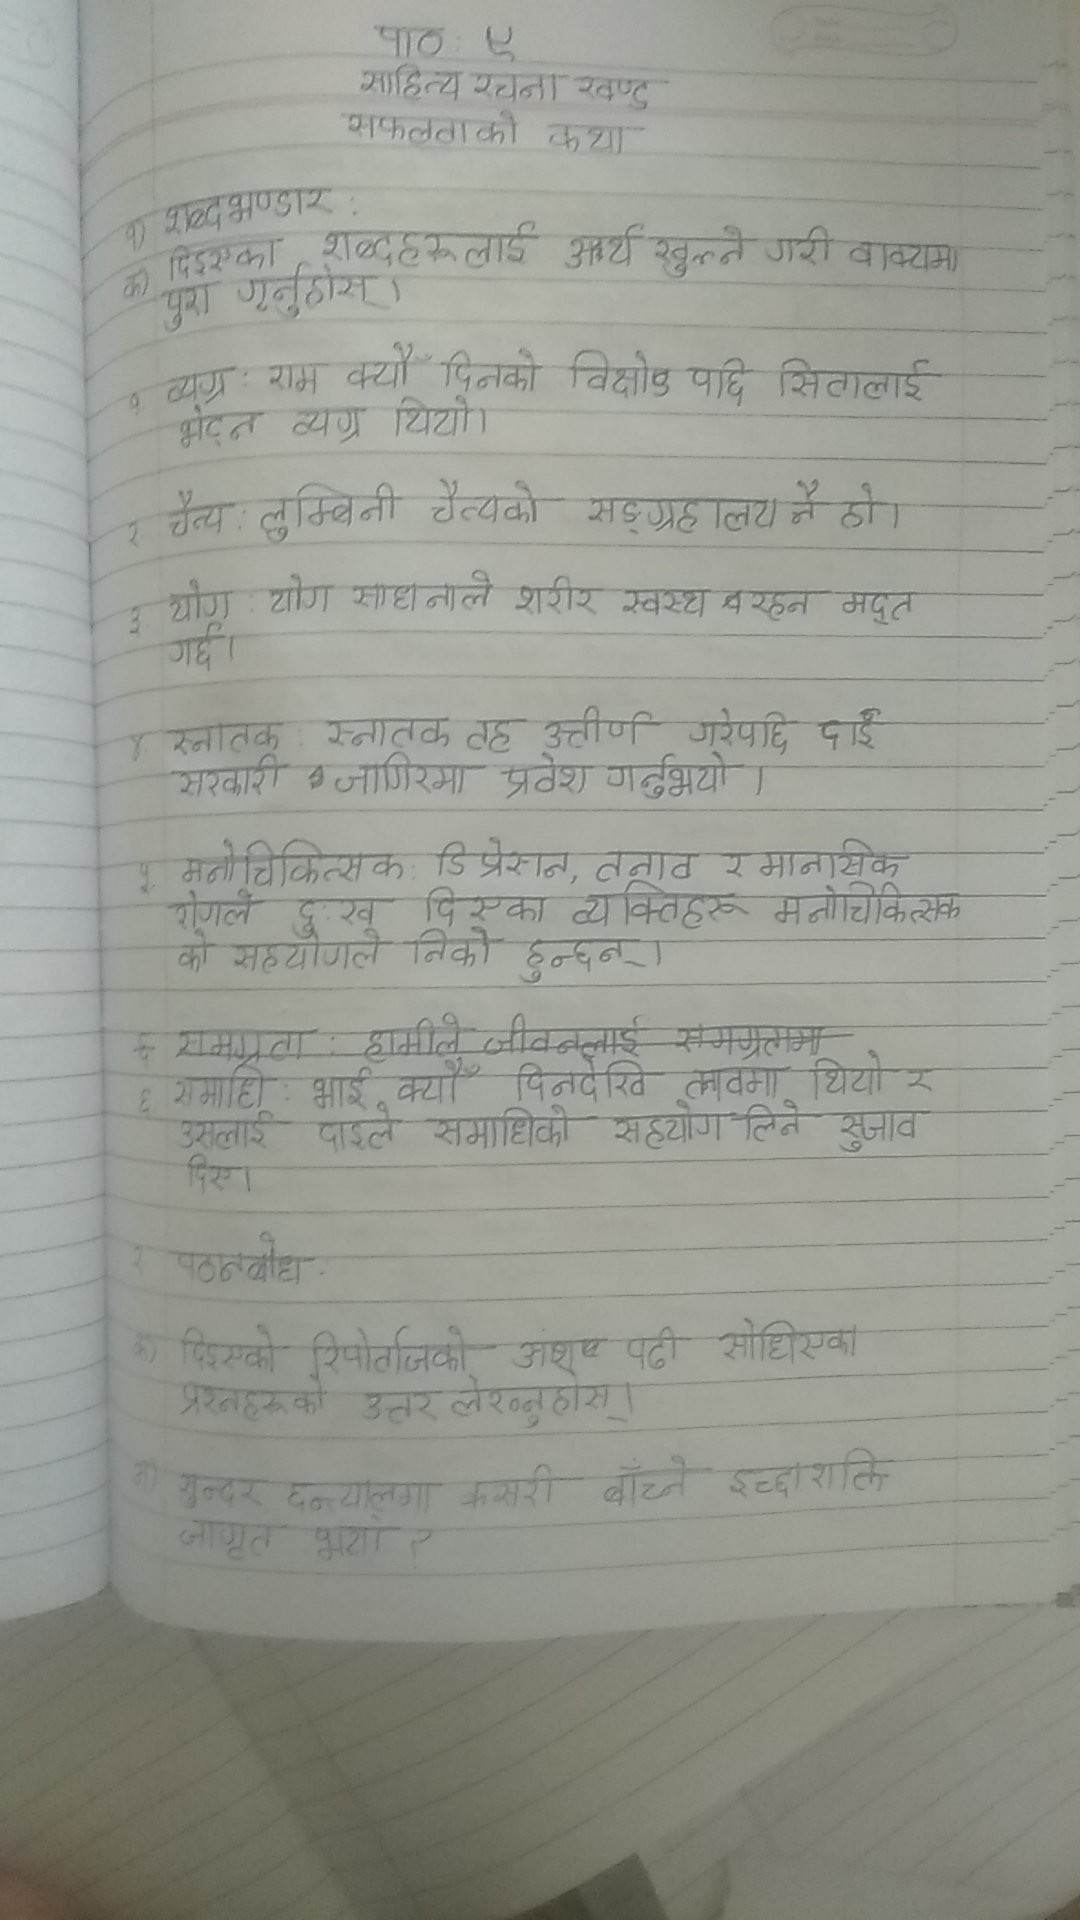 पाठ : ५
साहित्य रचना खण्ड
सफलताको कथा
१) शब्दभण्डार :
क) दिइएका शब्दहरूलाई अर्थ खुल्ने गरी वाक्यमा
पुरा गर्नुहोस् ।
१ व्यग्र : राम क्यौँ दिनको विक्षोड पछि सितालाई
भेट्न व्यग्र थियो।
२ चैत्य : लुम्बिनी चैत्यको सङ्ग्रहालय नै हो ।
३ योग : योग साधनाले शरीर स्वस्थ रहन मद्दत
गर्छ ।
४. स्नातक : स्नातक तह उत्तीर्ण गरेपछि दाई
सरकारी जागिरमा प्रवेश गर्नुभयो ।
५. मनोचिकित्सक : डिप्रेसन, तनाव र मानसिक
रोगले दुःख दिएका व्यक्तिहरू मनोचिकित्सक
को सहयोगले निको हुन्छन् ।
६ समग्रता : हामीले जीवनलाई समग्रतामा
६ समाधि : भाई क्यौँ दिनदेखि तनावमा थियो र
उसलाई दाइले समाधिको सहयोग लिने सुजाव
दिए ।
२ पठनबोध
क) दिइएको रिपोर्ताजको अंश पढी सोधिएका
प्रश्नहरूको उत्तर लेख्नुहोस् ।
सुन्दर दन्यालमा कसरी बाँच्ने इच्छाशक्ति
जागृत भयो ?